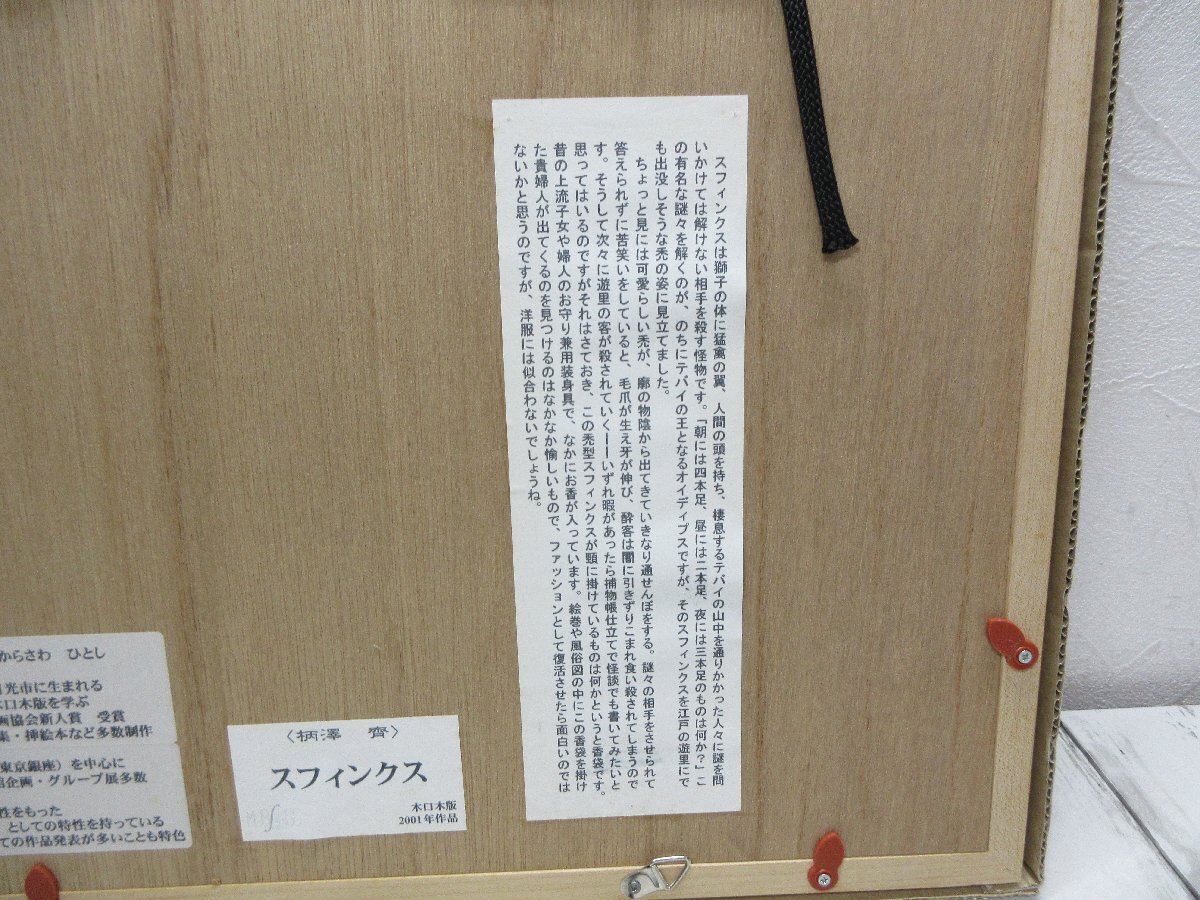 スフィンクスは獅子の体に猛禽の翼、人間の頭を持ち、棲息するテバイの山中を通りかかった人々に謎を問
いかけては解けない相手を殺す怪物です。「朝には四本足、昼には二本足、夜には三本足のものは何か？」こ
の有名な謎々を解くのが、のちにテバイの王となるオイディプスですが、そのスフィンクスを江戸の遊里にで
も出没しそうな禿の姿に見立てました。
ちょっと見には可愛らしい禿が、廓の物陰から出てきていきなり通せんぼをする。謎々の相手をさせられて
答えられずに苦笑いをしていると、毛爪が生え牙が伸び、酔客は闇に引きずりこまれ食い殺されてしまうので
す。そうして次々に遊里の客が殺されていく――いずれ暇があったら捕物帳仕立てで怪談でも書いてみたいと
思ってはいるのですがそれはさておき、この禿型スフィンクスが頸に掛けているものは何かというと香袋です。
昔の上流子女や婦人のお守り兼用装身具で、なかにお香が入っています。絵巻や風俗図の中にこの香袋を掛け
た貴婦人が出てくるのを見つけるのはなかなか愉しいもので、ファッションとして復活させたら面白いのでは
ないかと思うのですが、洋服には似合わないでしょうね。
からさわ ひとし
光市に生まれる
木口木版を学ぶ
画協会新人賞 受賞
集・挿絵本など多数制作
東京銀座）を中心に
企画・グループ展多数
性をもった
としての特性を持っている
ての作品発表が多いことも特色
〈柄澤 齊〉
スフィンクス
木口木版
2001年作品